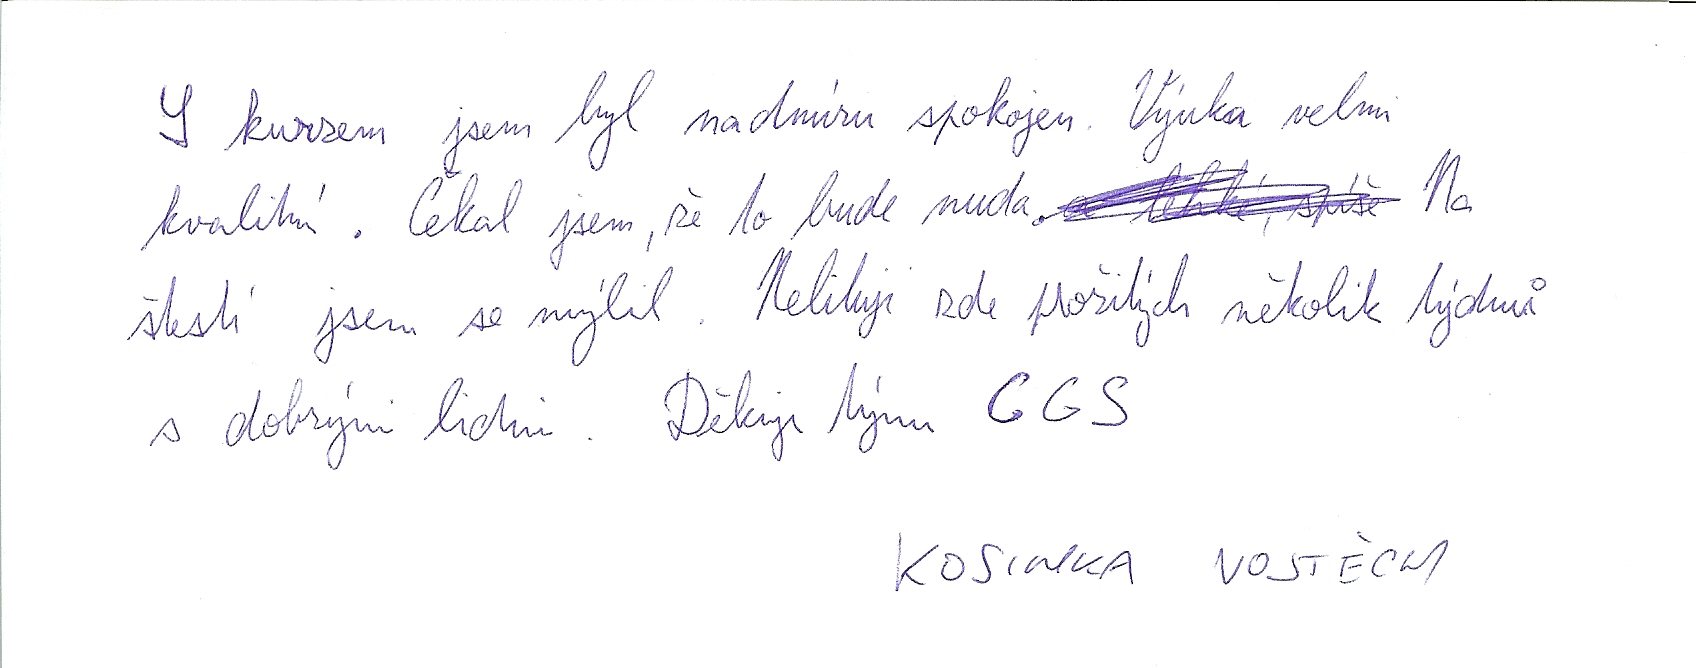 S kurzem jsem byl nadmíru spokojen. Výuka velmi
kvalitní. Čekal jsem, že to bude nuda. Na
štěstí jsem se mýlil. Nelituji zde prožitých několik týdnů
s dobrými lidmi. Děkuji týmu GGS